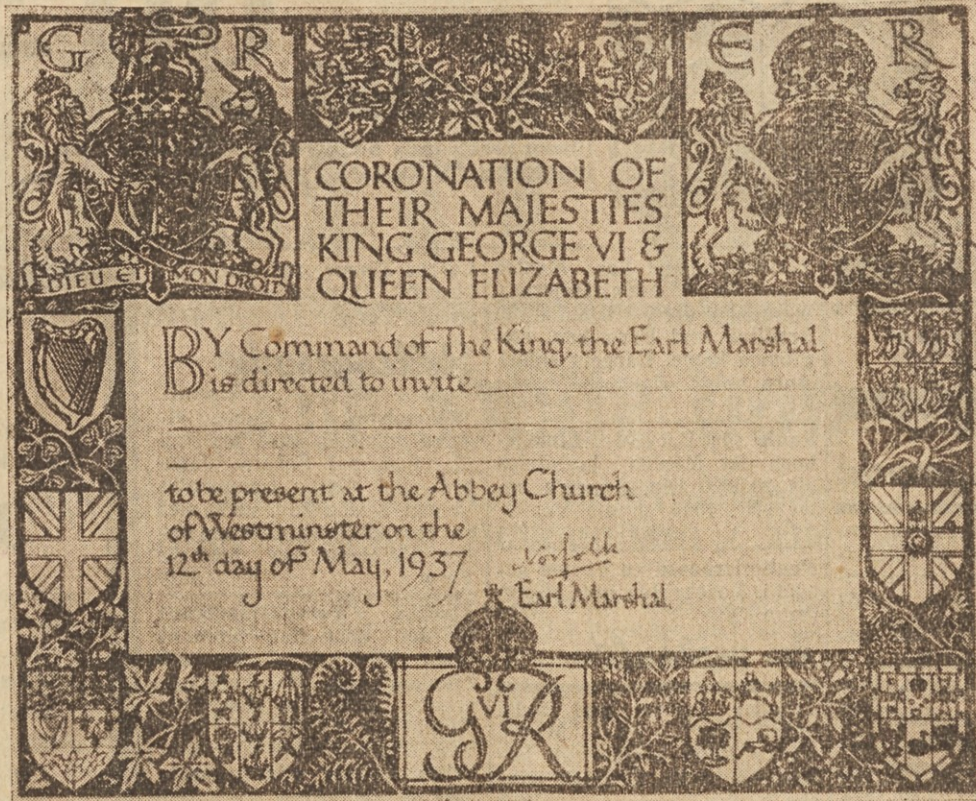 G R
E R
CORONATION OF
THEIR MAJESTIES
KING GEORGE VI &
QUEEN ELIZABETH
DIEU ET MON DROIT
BY Command of The King, the Earl Marshal
is directed to invite
to be present at the Abbey Church
of Westminster on the
12th day of May, 1937
Norfolk
Earl Marshal.
G VI R